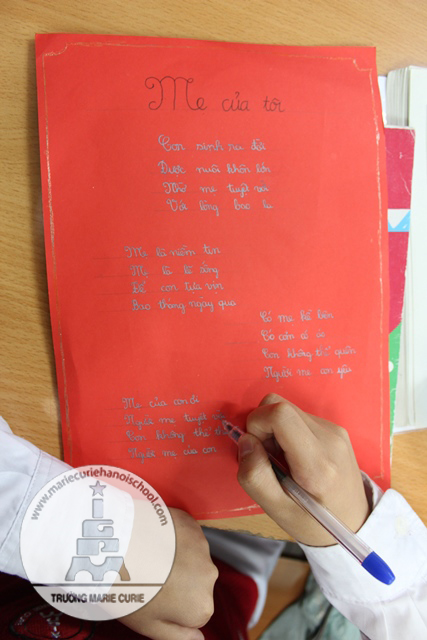 Mẹ của tôi
Con sinh ra đời
Được nuôi khôn lớn
Nhờ mẹ tuyệt vời
Với lòng bao la
Mẹ là niềm tin
Mẹ là lẽ sống
Để con tựa vin
Bao tháng ngày qua
Có mẹ kề bên
Có cơm có áo
Con không thể quên
Người mẹ con yêu
Mẹ của con ơi
Người mẹ tuyệt vời
Con không thể
Người mẹ của con
www.mariecuriehanoischool.com
TRƯỜNG MARIE CURIE